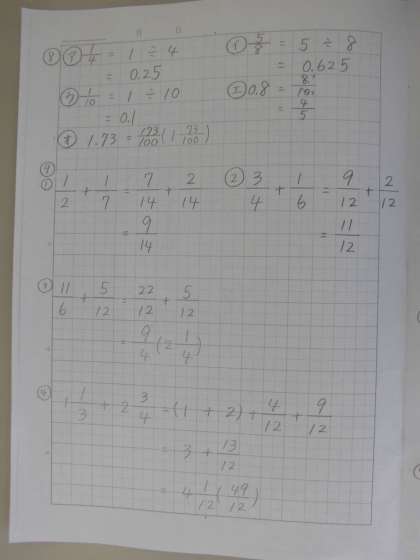 ⑧ ㋐ 1/4 = 1 ÷ 4
= 0.25
㋑ 5/8 = 5 ÷ 8
= 0.625
㋒ 1/10 = 1 ÷ 10
= 0.1
㋓ 0.8 = 8/10
= 4/5
㋔ 1.73 = 173/100 (1 73/100)
⑨
① 1/2 + 1/7 = 7/14 + 2/14
= 9/14
② 3/4 + 1/6 = 9/12 + 2/12
= 11/12
③ 11/6 + 5/12 = 22/12 + 5/12
= 9/4 (2 1/4)
④ 1 1/3 + 2 3/4 = (1 + 2) + 4/12 + 9/12
= 3 + 13/12
= 4 1/12 (49/12)